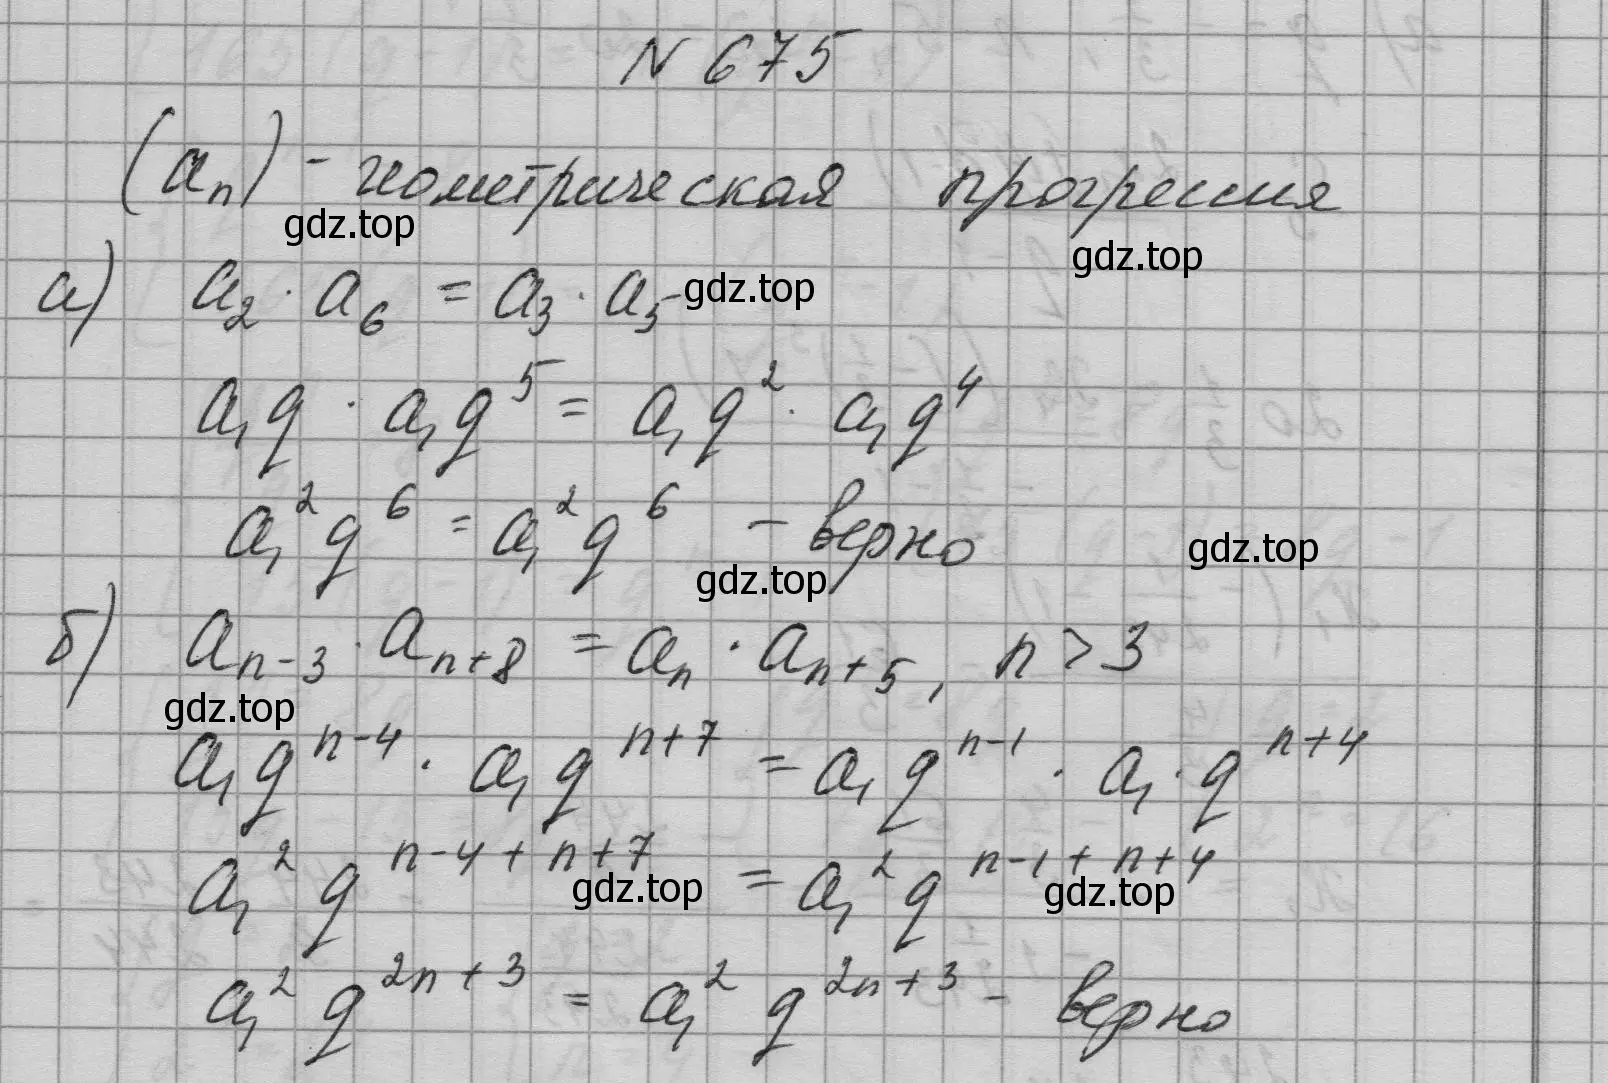 N 675
(aₙ) - геометрическая прогрессия
gdz.top gdz.top
а) a₂ · a₆ = a₃ · a₅ gdz.top
a₁q · a₁q⁵ = a₁q² · a₁q⁴
a₁²q⁶ = a₁²q⁶ - верно
gdz.top gdz.top
б) aₙ₋₃ · aₙ₊₈ = aₙ · aₙ₊₅, n > 3
gdz.top
a₁qⁿ⁻⁴ · a₁qⁿ⁺⁷ = a₁qⁿ⁻¹ · a₁ · qⁿ⁺⁴
a₁²qⁿ⁻⁴⁺ⁿ⁺⁷ = a₁²qⁿ⁻¹⁺ⁿ⁺⁴
gdz.top gdz.top
a₁²q²ⁿ⁺³ = a₁²q²ⁿ⁺³ - верно